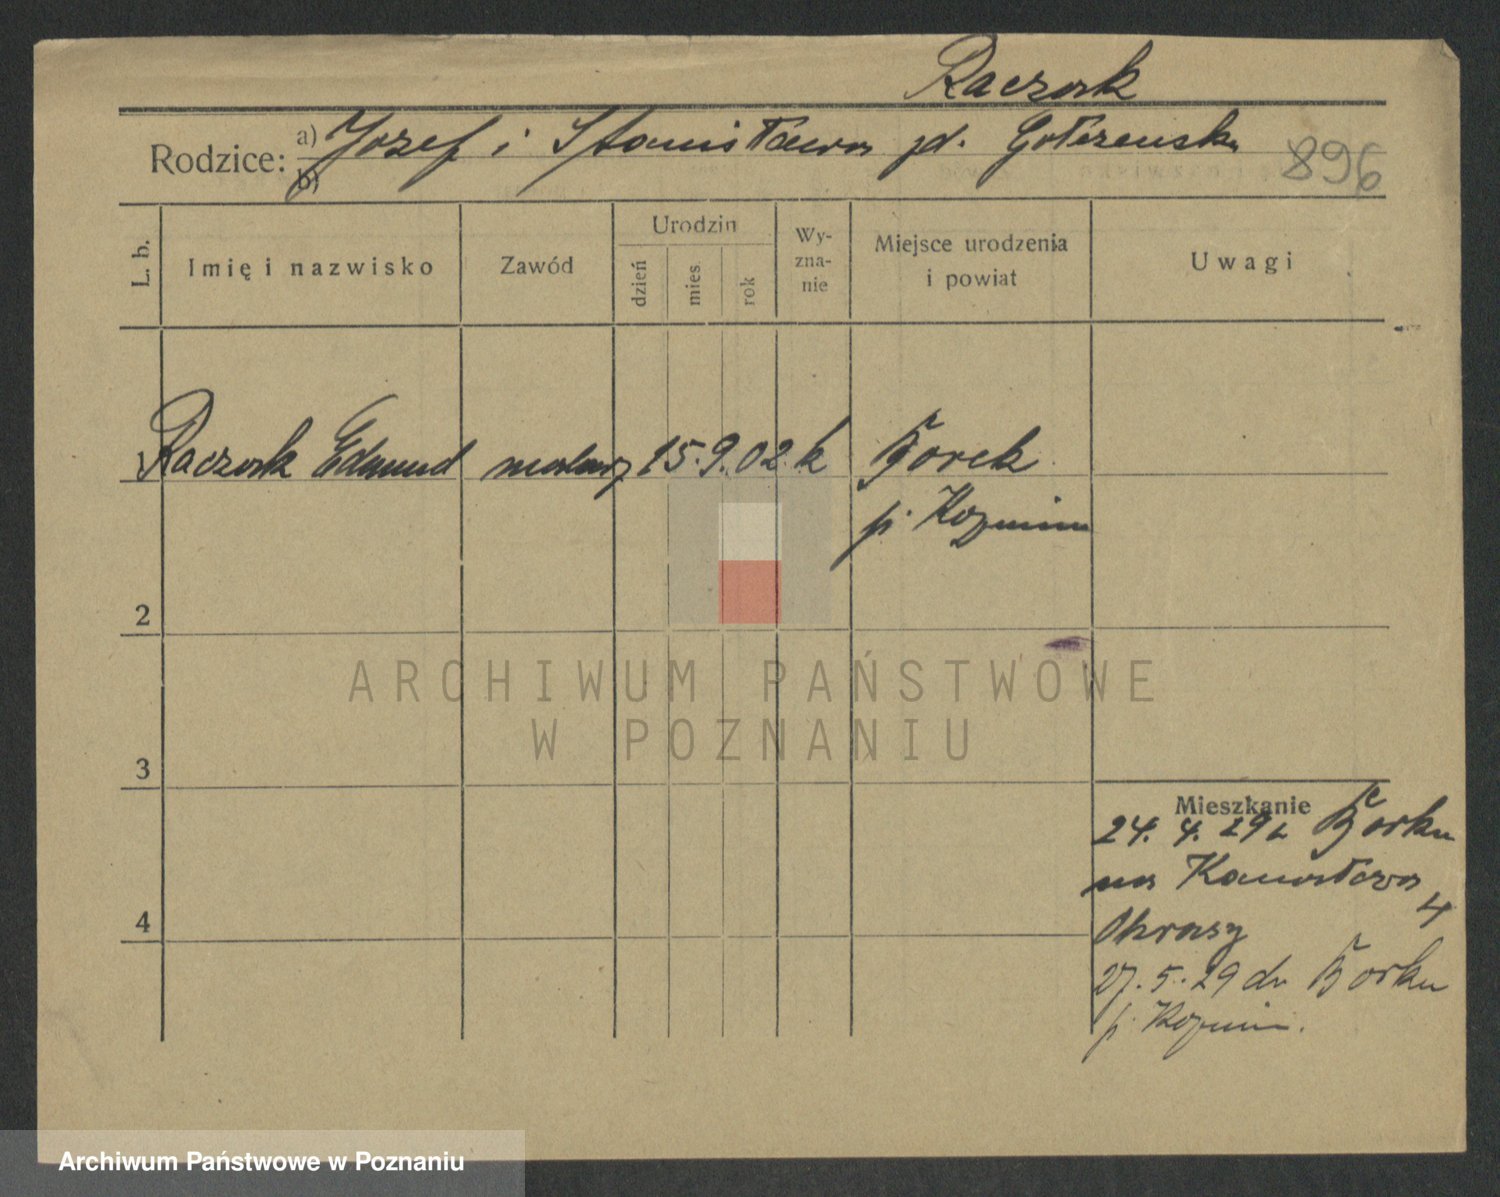 Raczak
Rodzice: a) Józef i Stanisława zd.
b)
896
L. b. Imię i nazwisko Zawód Urodzin dzień mies. rok Wy-zna-nie Miejsce urodzenia i powiat Uwagi
Raczak Edmund malarz 15. 9. 02 k Borek
p. Koźmin
2
ARCHIWUM PAŃSTWOWE
W POZNANIU
3
Mieszkanie
24. 4. 29 z Borku
na
4
27. 5. 29 do Borku
p. Koźmin.
4
Archiwum Państwowe w Poznaniu